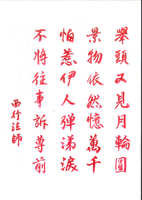 舉頭又見月輪圓
景物依然憶萬千
怕惹伊人彈涕淚
不將往事訴尊前
西行法師